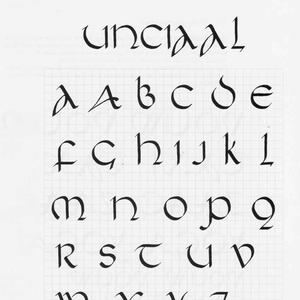 unciaal
A A B C D E
F G H I J K L
M N O P Q
R S T U V